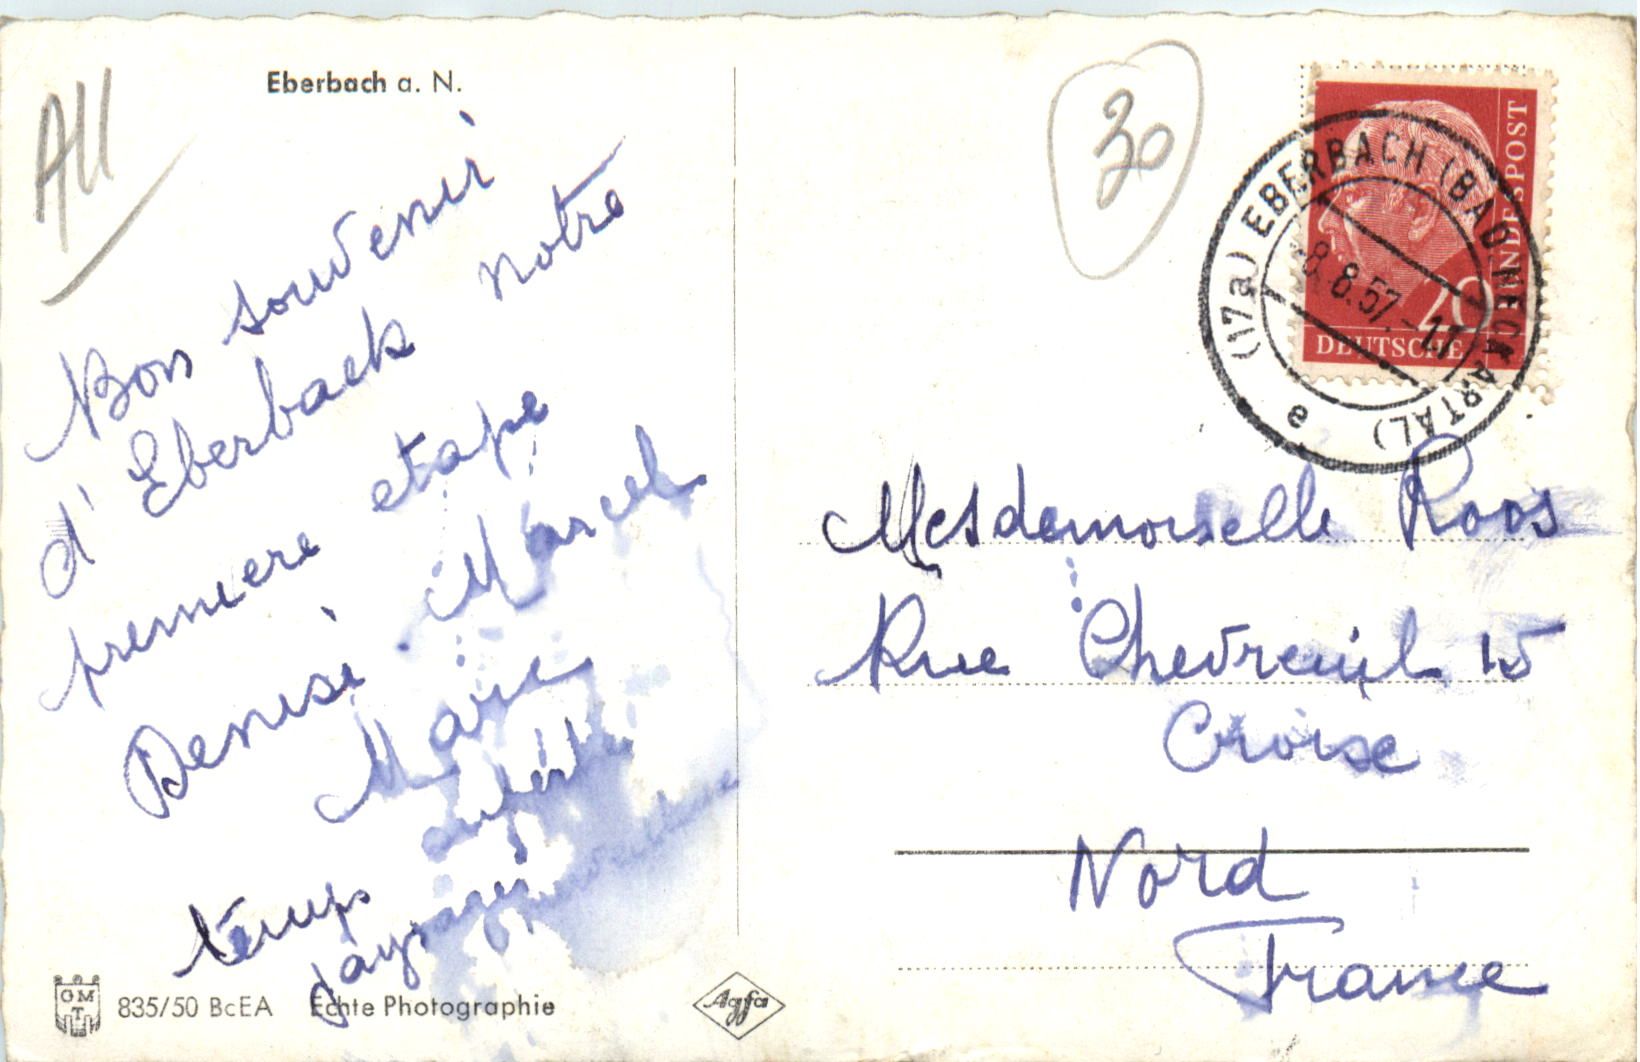 All
Eberbach a. N.
Bon souvenir
d'Eberback notre
premiere etape
Denise Marcel
Marie
temps superbe
paysage
GMT
835/50 BcEA Echte Photographie
Agfa
30
DEUTSCHE BUNDESPOST
20
(17a) EBERBACH (BAD. NECKARTAL)
8.8.57.-17
a
Mesdemoiselle Roos
Rue Chevreuil 15
Croise
Nord
France